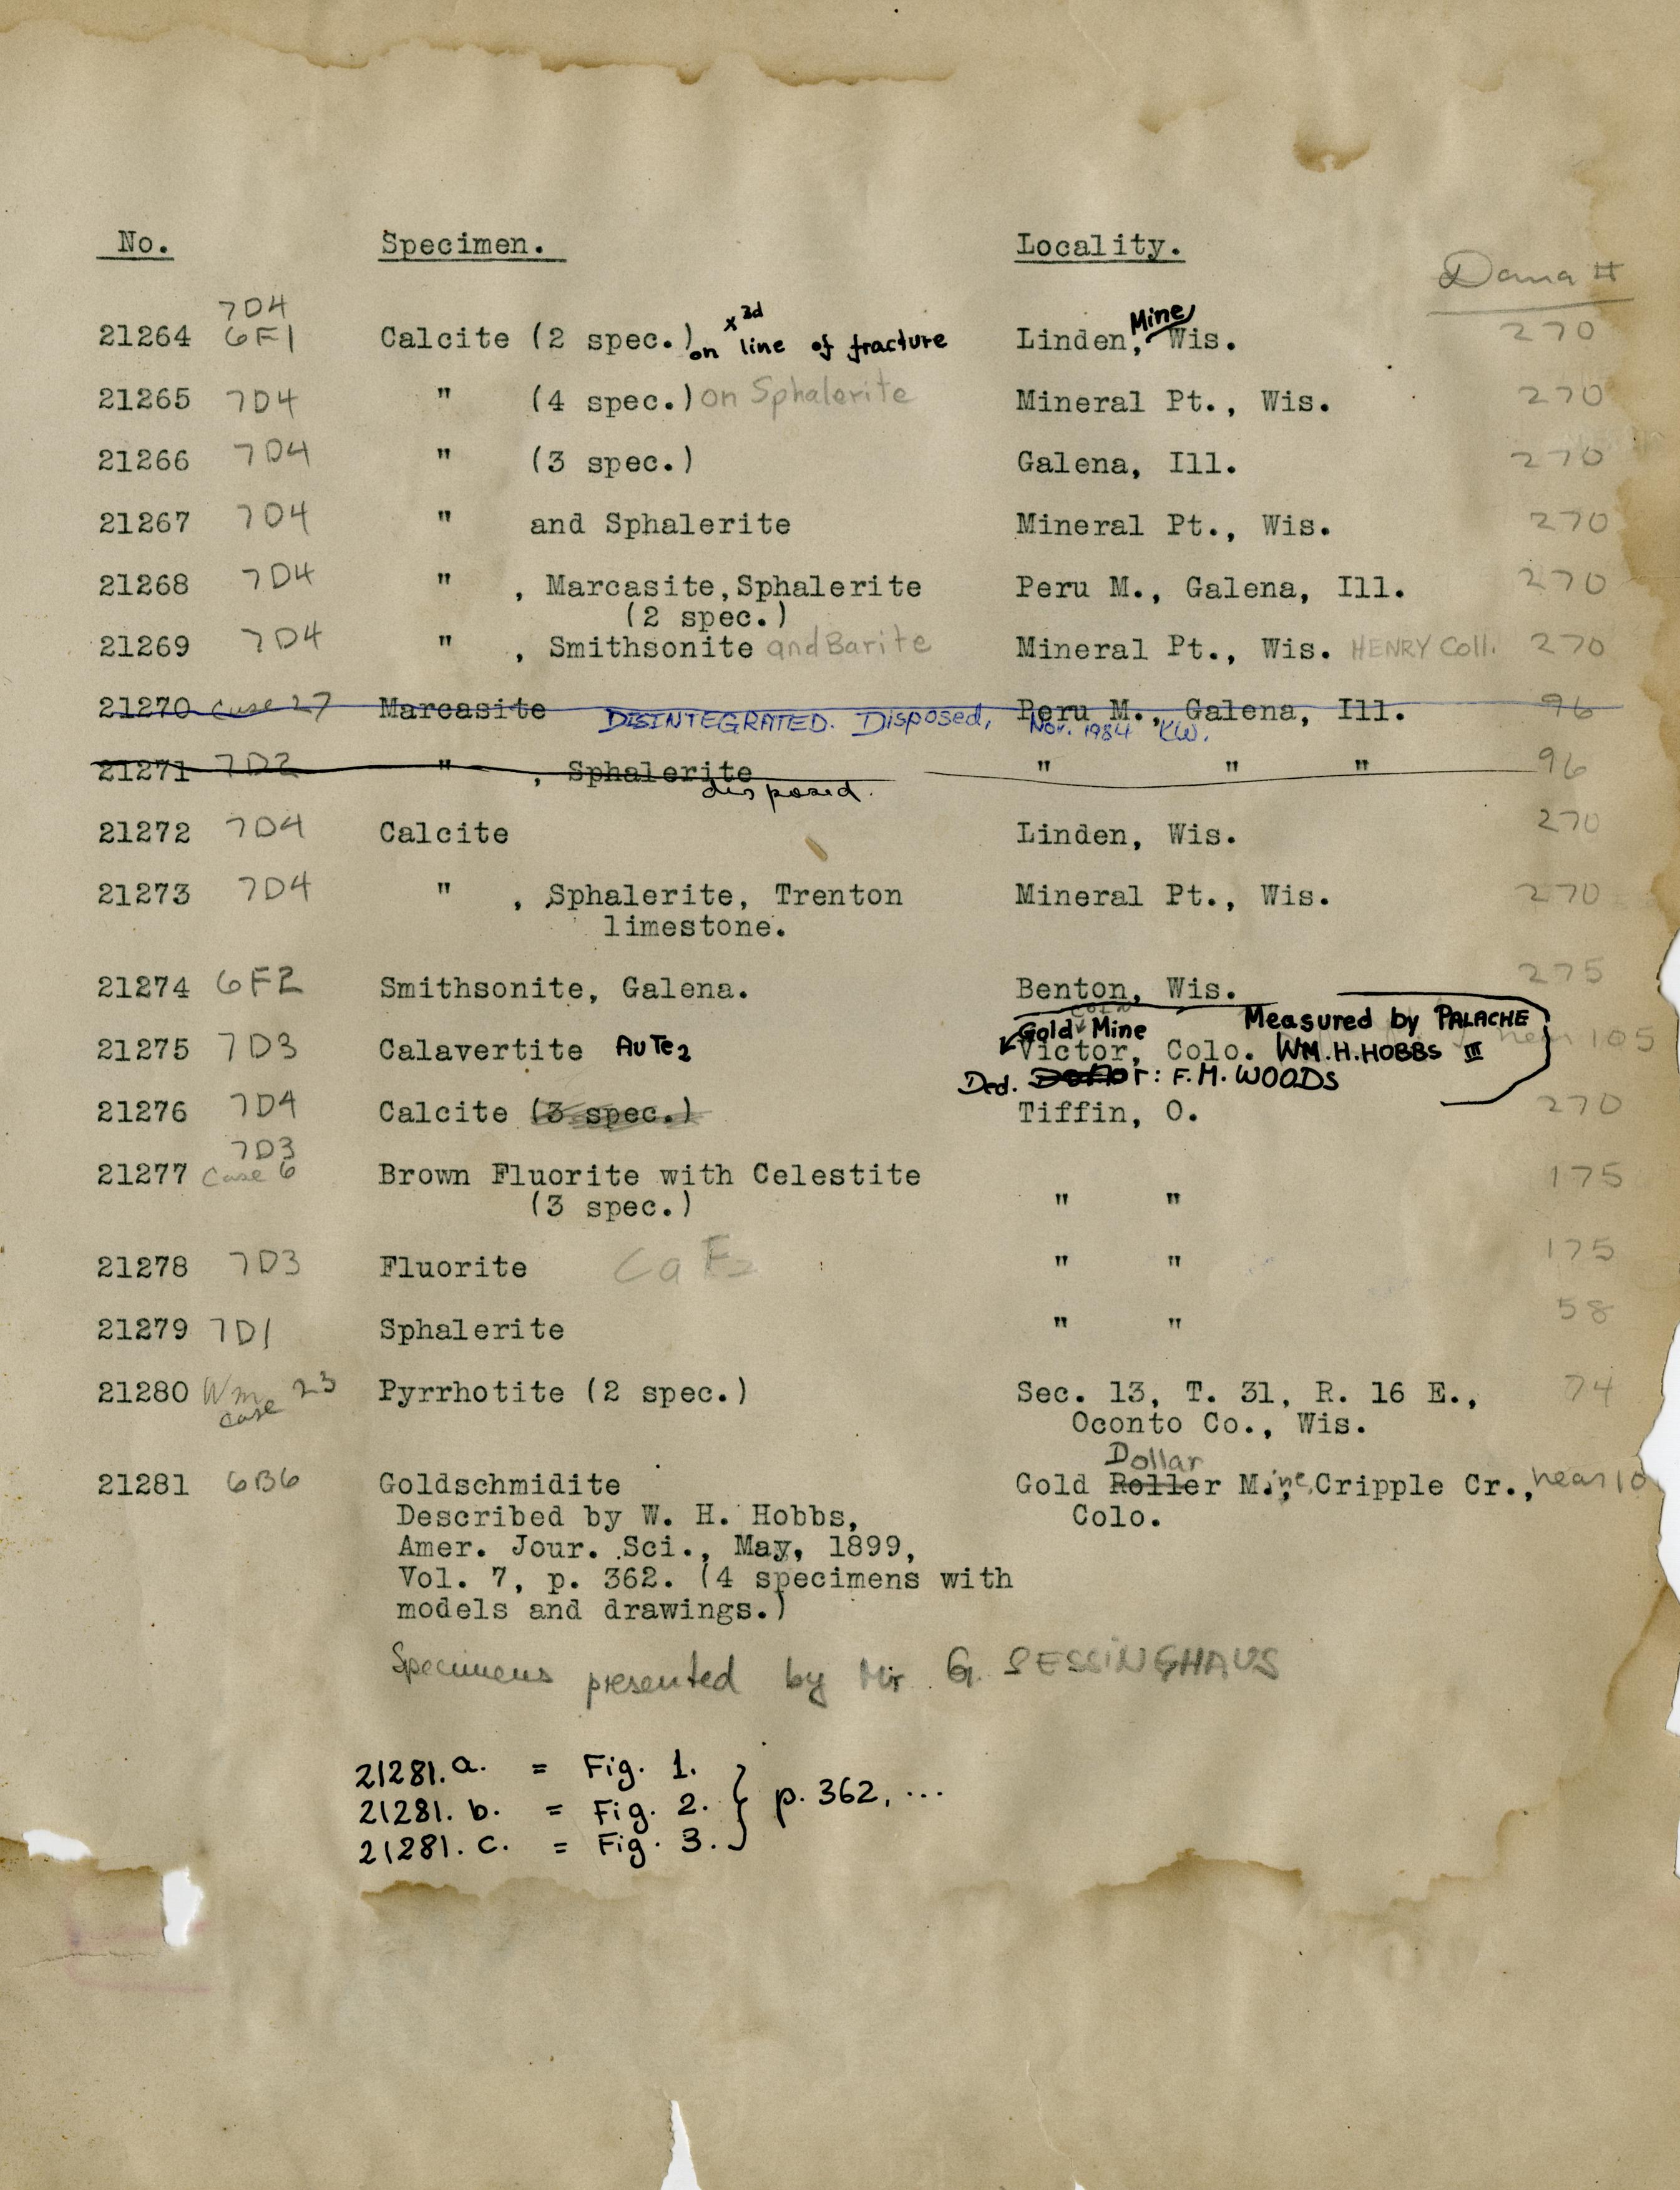 No. Specimen. Locality. Dana #
7D4
21264 6F1 Calcite (2 spec.) on line of fracture Linden, Mine Wis. 270
21265 7D4 " (4 spec.) on Sphalerite Mineral Pt., Wis. 270
21266 7D4 " (3 spec.) Galena, Ill. 270
21267 7D4 " and Sphalerite Mineral Pt., Wis. 270
21268 7D4 " , Marcasite,Sphalerite Peru M., Galena, Ill. 270
(2 spec.)
21269 7D4 " , Smithsonite and Barite Mineral Pt., Wis. HENRY Coll. 270
21270 Case 27 Marcasite Peru M., Galena, Ill. 96
DISINTEGRATED. Disposed, Nov. 1984 KW.
21271 7D2 " , Sphalerite " " " 96
disposed.
21272 7D4 Calcite Linden, Wis. 270
21273 7D4 " , Sphalerite, Trenton Mineral Pt., Wis. 270
limestone.
21274 6F2 Smithsonite, Galena. Benton, Wis. 275
Gold Coin Mine Measured by PALACHE
21275 7D3 Calavertite AuTe2 Victor, Colo. WM.H.HOBBS III near 105
Ded. Donor: F.M. WOODS
21276 7D4 Calcite (3 spec.) Tiffin, O. 270
7D3
21277 Case 6 Brown Fluorite with Celestite 175
(3 spec.) " "
21278 7D3 Fluorite CaF2 " " 175
21279 7D1 Sphalerite " " 58
21280 Wm case 23 Pyrrhotite (2 spec.) Sec. 13, T. 31, R. 16 E., 74
Oconto Co., Wis.
Dollar
21281 6B6 Goldschmidite Gold Roller Mine, Cripple Cr., near 10
Described by W. H. Hobbs, Colo.
Amer. Jour. Sci., May, 1899,
Vol. 7, p. 362. (4 specimens with
models and drawings.)
Specimens presented by Mr. G. SESSINGHAUS
21281.a. = Fig. 1.
21281.b. = Fig. 2. } p. 362, ...
21281.c. = Fig. 3.